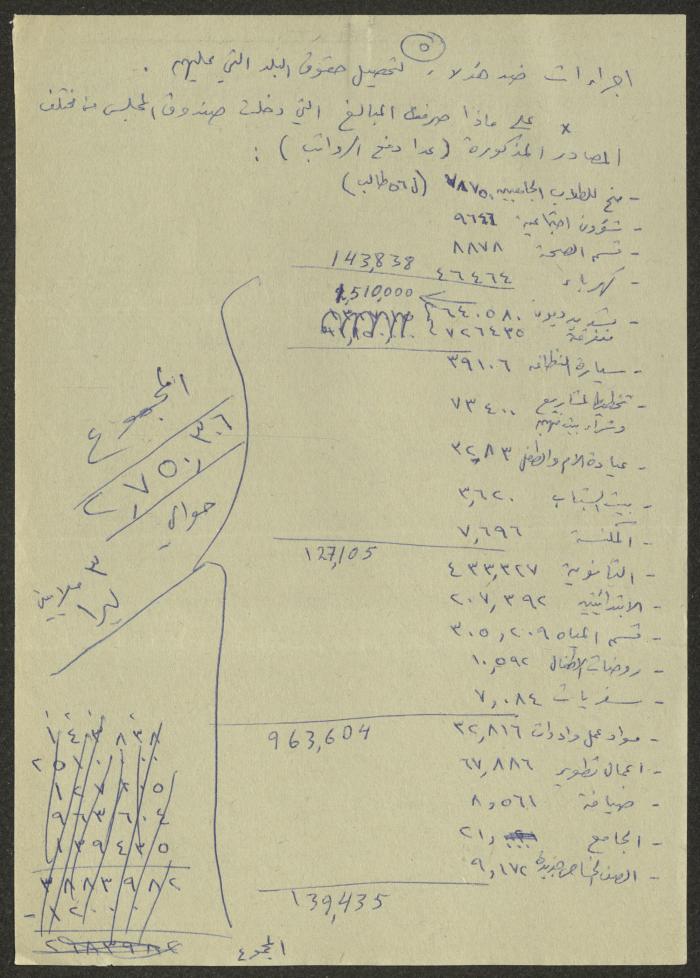 ٥
اجراءات ضد هؤلاء، لتحصيل حقوق البلد التي عليهم .
x على ماذا صرفت المبالغ التي دخلت صندوق المجلس من مختلف
المصادر المذكورة (عدا دفع الرواتب) :
- منح للطلاب الجامعيين ٧٨٧٥٠ (ل٥٦ طالب)
- شؤون اجتماعية ٩٦٤٦
- قسم الصحة ٨٨٧٨
143,838
- كهرباء ٤٦٤٦٤
1,510,000
- تسديد ديون ٦٤٠٥٨٠
متفرقة ٧٢٦٤٣٥
- سيارة النظافه ٣٩١٠٦
- تخطيط مشاريع ٧٣٤٠٠
وشراء
- عيادة الام والطفل ٣٢,٨٣
- بيت الشباب ٣,٦٢٠
- المكتبة ٧,٦٩٦
127,105
- الثانوية ٤٣٣,٣٢٧
- الابتدائيتين ٢٠٧,٣٩٢
- قسم المياه ٣٠٥,٢٠٩
- روضات الاطفال ١٠,٥٩٢
- سفريات ٧,٠٨٤
963,604
- مواد عمل وادوات ٣٢,٨١٦
- اعمال تطوير ٦٧,٨٨٦
- ضيافة ٨,٥٦١
- الجامع ٢١,
- الصف الخاص ٩,١٧٢
139,435
المجموع
٢,٧٥٠,٣٠٦
حوالي
٣ ملايين
ليرا
المجموع